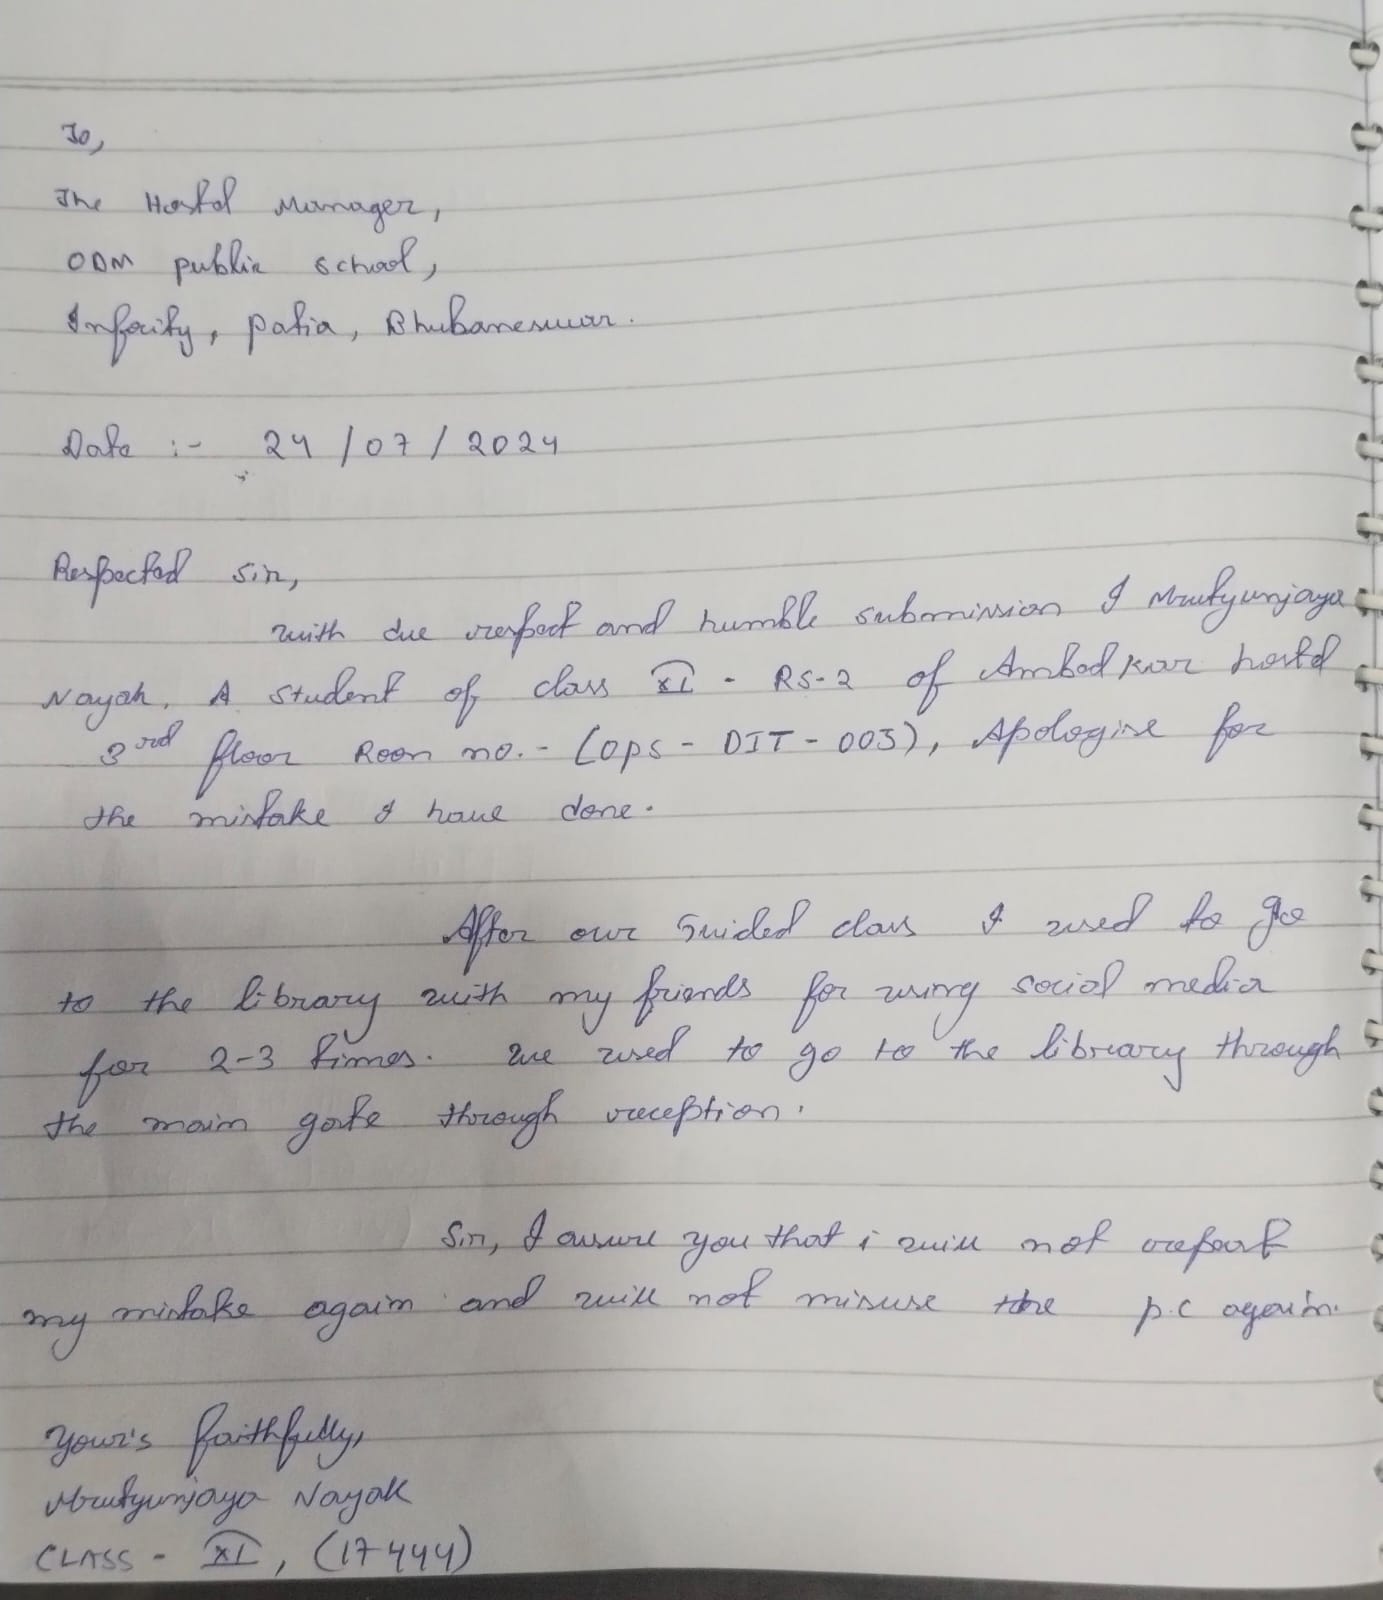 To,
The Hostel Manager,
ODM public school,
Infocity, patia, Bhubaneswar.
Date :- 24/07/2024
Respected Sir,
with due respect and humble submission I Mrutyunjaya
Nayak. A student of class XI - RS-2 of Ambedkar hostel
3rd floor Room no. - (OPS - DIT - 003), Apologise for
the mistake I have done.
After our Guided class I used to go
to the library with my friends for using social media
for 2-3 times. We used to go to the library through
the main gate through reception.
Sir, I assure you that i will not repeat
my mistake again and will not misuse the p.c again.
Your's faithfully,
Mrutyunjaya Nayak
CLASS - XI, (17444)